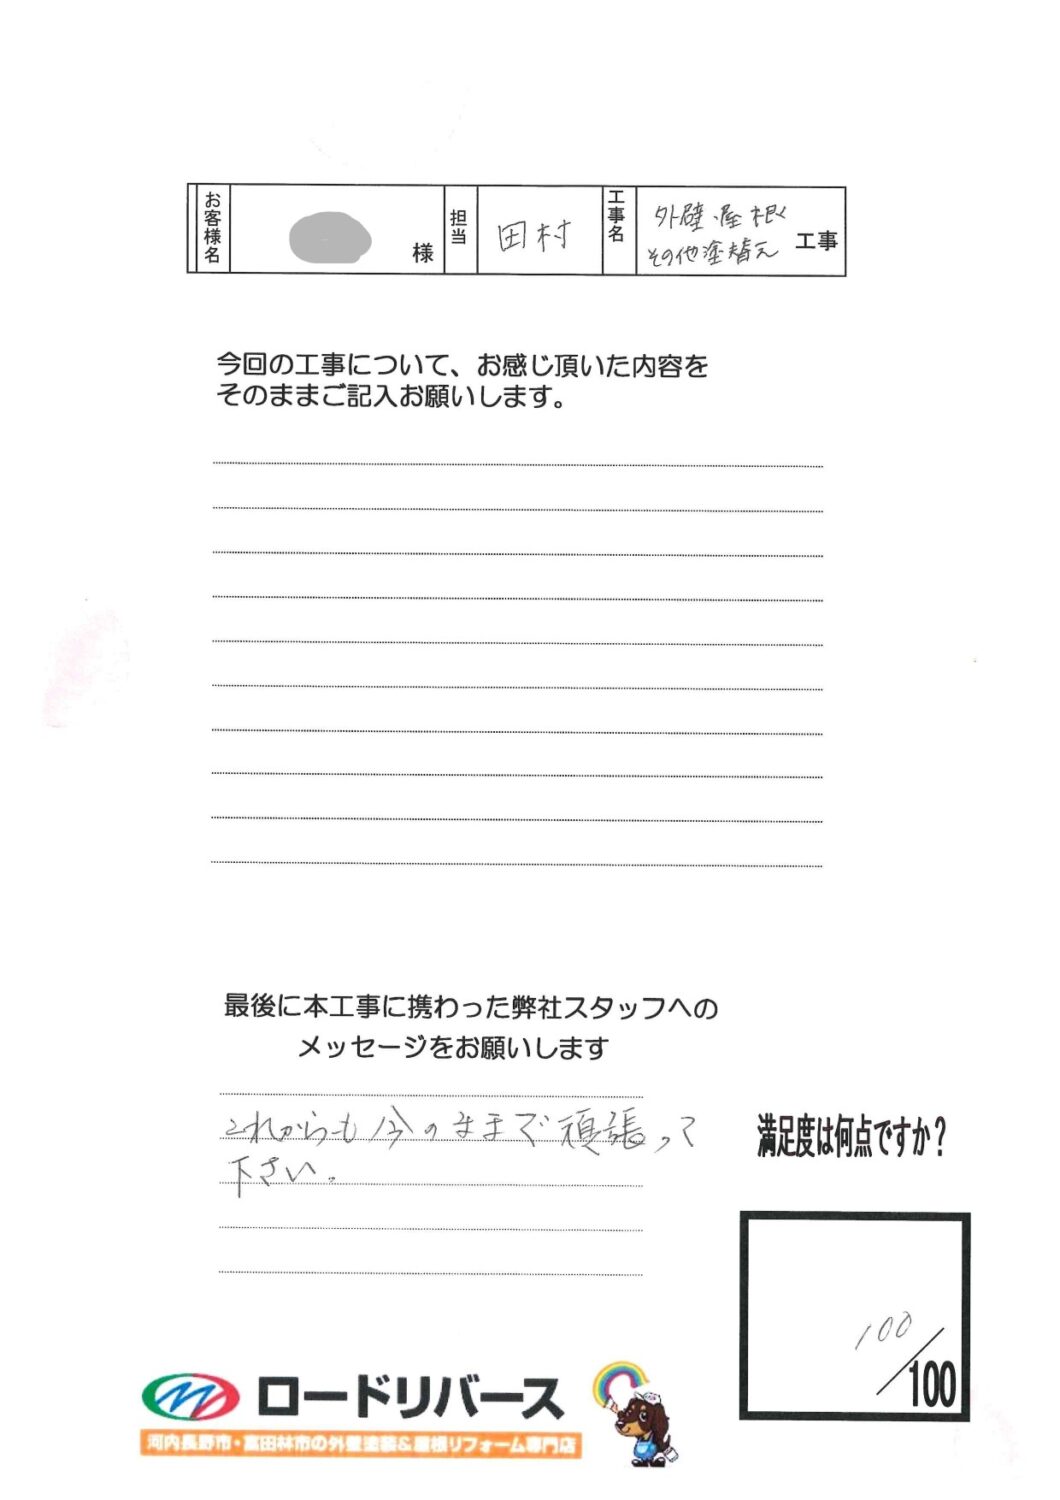 お客様名
様
担当
田村
工事名
外壁・屋根
その他塗替え
工事
今回の工事について、お感じ頂いた内容を
そのままご記入お願いします。
最後に本工事に携わった弊社スタッフへの
メッセージをお願いします
これからも今のままで頑張って
下さい。
満足度は何点ですか？
100
/100
ロードリバース
河内長野市・富田林市の外壁塗装&屋根リフォーム専門店